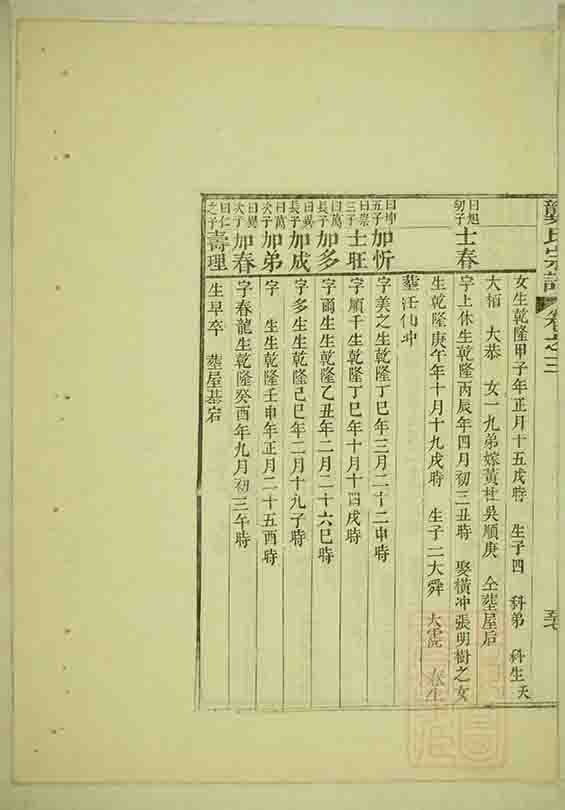 龔氏宗譜 卷之三
女生乾隆甲子年正月十五戌時 生子四 科弟 科生 天
大栢 大恭 女一九弟嫁黃杜吳順庚 仝塟屋后
日旭 幼子 士春 字上休生乾隆丙辰年四月初三丑時 娶橫冲張明樹之女
生乾隆庚午年十月十九戌時 生子二大舜 大虎
塟汪仙冲
日坤 五子 加忻 字美之生乾隆丁巳年三月二十二申時
日崇 三子 士旺 字順千生乾隆丁巳年十月十四戌時
日萬 長子 加多 字爾生生乾隆乙丑年二月二十六巳時
日異 長子 加成 字多生生乾隆己巳年二月十九子時
日萬 次子 加弟 字 生生乾隆壬申年正月二十五酉時
日異 次子 加春 字春龍生乾隆癸酉年九月初三午時
日仁 之子 壽理 生早卒 塟屋基宕